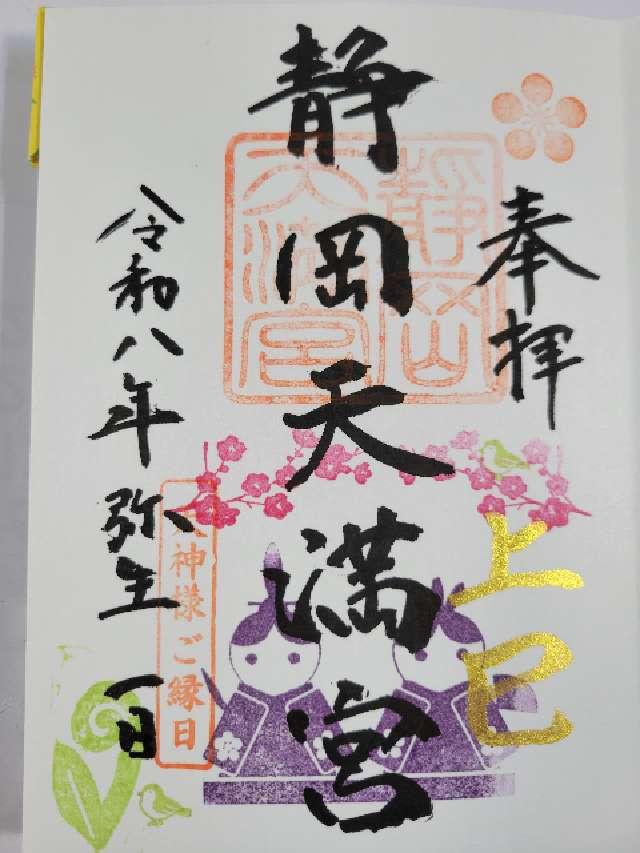 奉拝
上巳
静岡天満宮
静岡
天満宮
天神様ご縁日
令和八年弥生一日